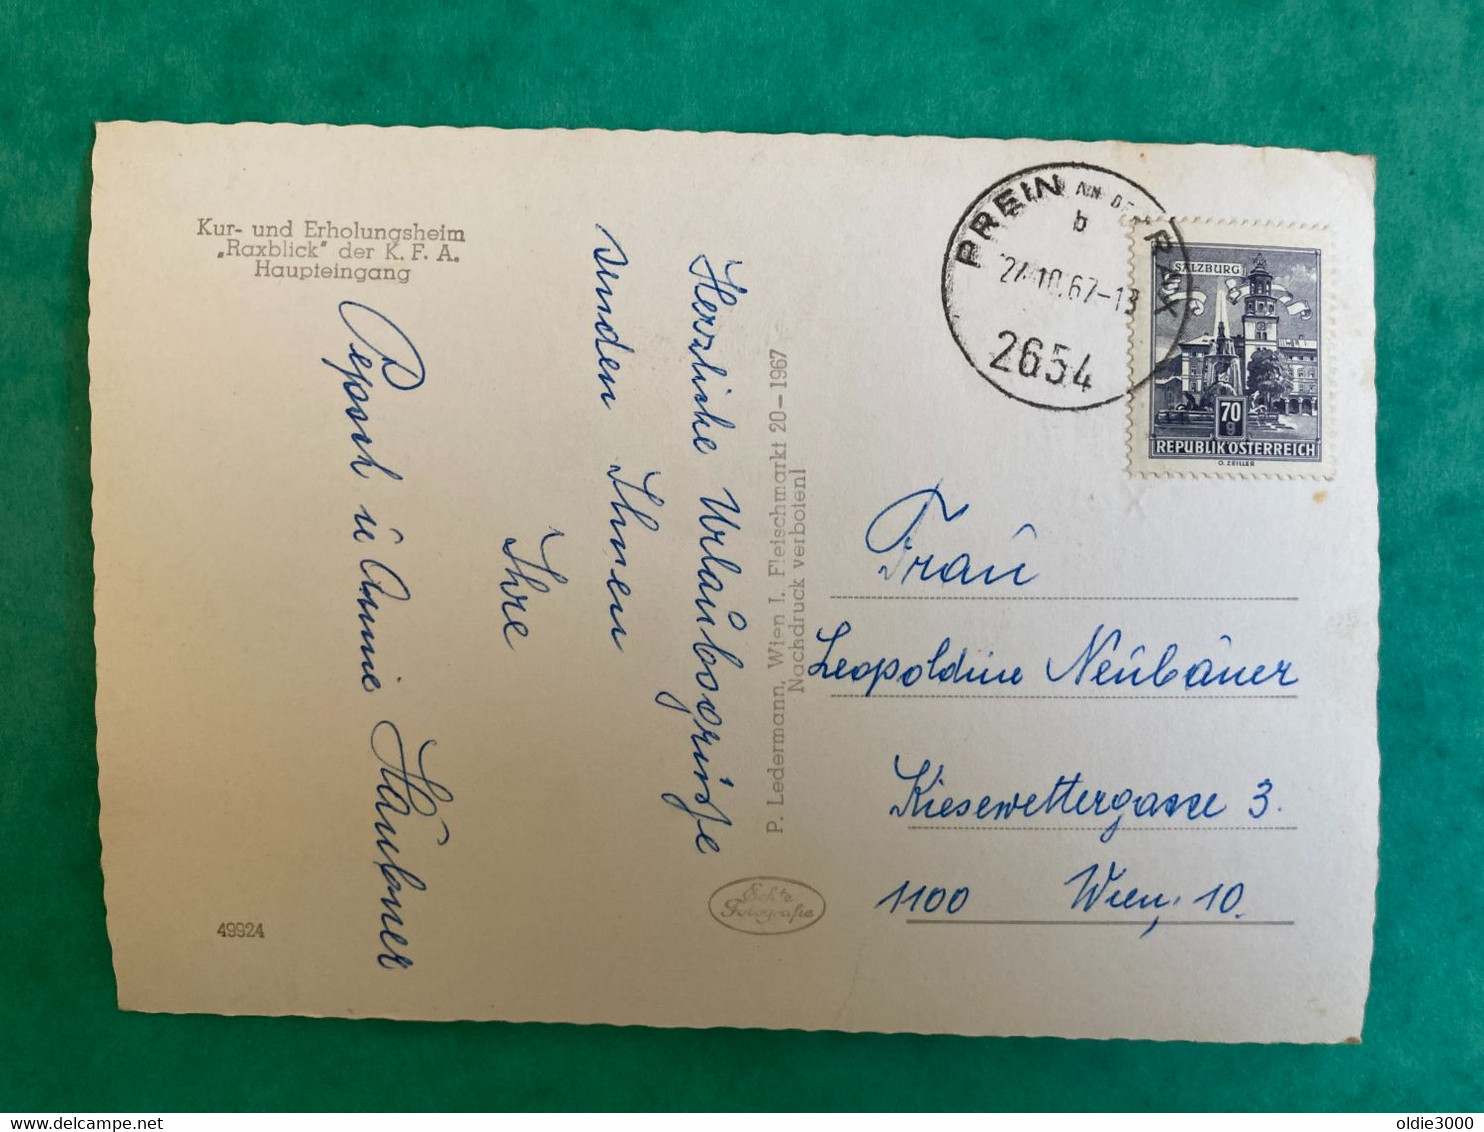 Kur- und Erholungsheim
„Raxblick" der K. F. A.
Haupteingang
Herzliche Urlaubsgrüße
senden Ihnen
Ihre
Pepsch u Annie Haubner
49924
P. Ledermann, Wien I. Fleischmarkt 20 – 1967
Nachdruck verboten!
Echte
Fotografie
PREIN AN DER RAX
b
27.10.67-13
2654
SALZBURG
70
g
REPUBLIK ÖSTERREICH
O. ZEILLER
Frau
Leopoldine Neubauer
Kiesewettergasse 3.
1100 Wien, 10.
oldie3000